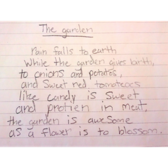 The garden
Rain falls to earth
While the garden gives birth
to onions and potatos,
and sweet red tomatoers
like candy is sweet
and protien in meat
the garden is awesome
as a flower is to blossom.